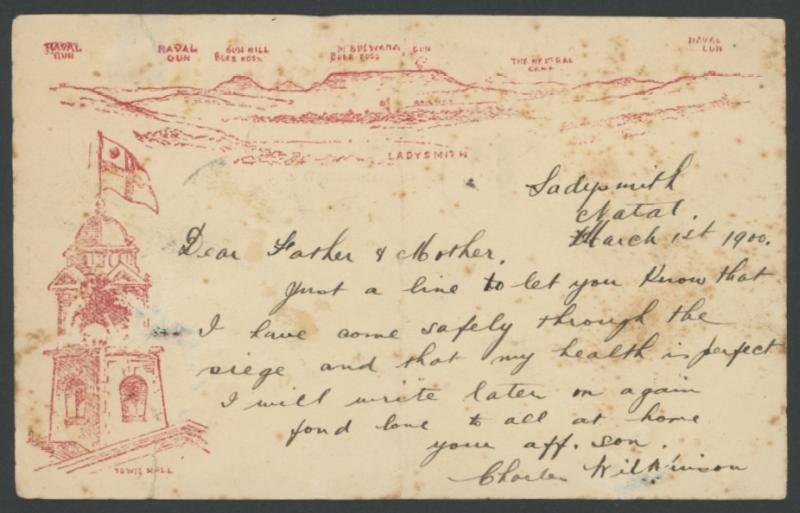 NAVAL GUN
NAVAL GUN
GUN HILL
BOER POSN
Mt BULWANA GUN
BOER POSN
THE NEUTRAL CAMP
NAVAL GUN
LADYSMITH
Ladysmith
Natal.
March 1st 1900.
Dear Father & Mother.
Just a line to let you know that
I have come safely through the
siege and that my health is perfect
I will write later on again
fond love to all at home
your aff. son.
Charles Wilkinson
TOWN HALL